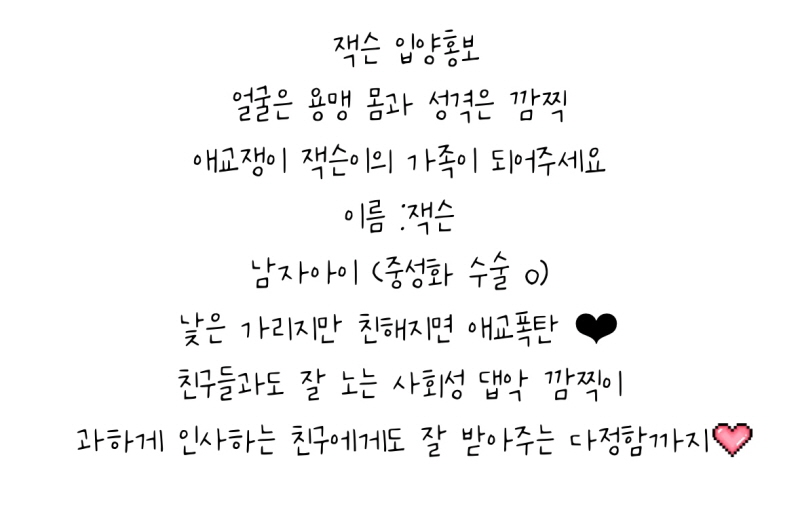 잭슨 입양홍보
얼굴은 용맹 몸과 성격은 깜찍
애교쟁이 잭슨이의 가족이 되어주세요
이름 :잭슨
남자아이 (중성화 수술 o)
낯은 가리지만 친해지면 애교폭탄 ❤
친구들과도 잘 노는 사회성 댑악 깜찍이
과하게 인사하는 친구에게도 잘 받아주는 다정함까지💖